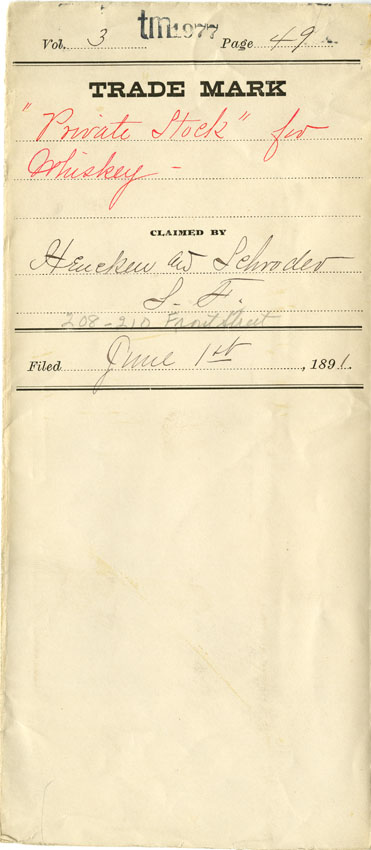 tm1977
Vol. 3 Page 49
TRADE MARK
"Private Stock" for
Whiskey -
CLAIMED BY
Hencken and Schroder
S. F.
208-210 Front Street
Filed June 1st, 1891.